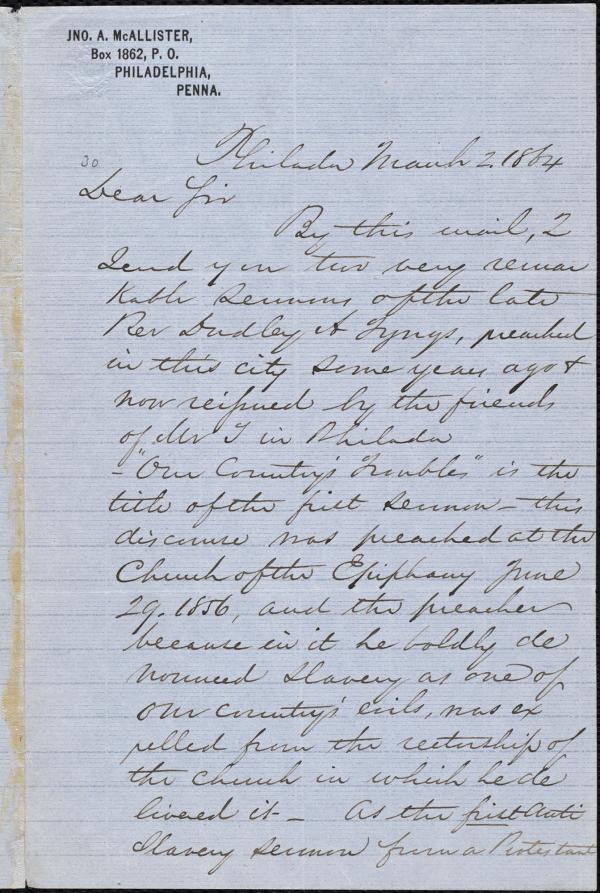 JNO. A. McALLISTER,
Box 1862, P. O.
PHILADELPHIA,
PENNA.
30
Philada March 2. 1864
Dear Sir
By this mail, I
send you two very remar
kable sermons of the late
Rev Dudley A Tyng, preached
in this city some years ago &
now reissued by the friends
of Mr T in Philada
- "Our Country's Troubles" is the
title of the first sermon - this
discourse was preached at the
Church of the Epiphany June
29. 1856, and the preacher
because in it he boldly de
nounced Slavery as one of
our country's evils, was ex
pelled from the rectorship of
the church in which he de
livered it - As the first Anti
Slavery sermon from a Protestant